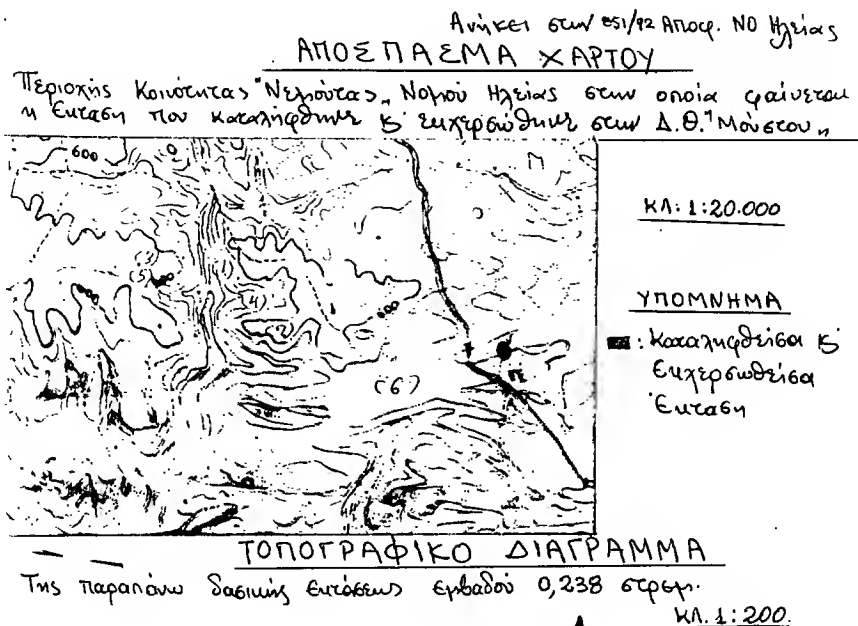 Ανήκει στην 851/92 Αποφ. ΝΟ Ηλείας
ΑΠΟΣΠΑΣΜΑ ΧΑΡΤΟΥ
Περιοχής Κοινότητας "Νεμούτας" Νομού Ηλείας στην οποία φαίνεται
η έκταση που καταλήφθηκε κ' εκχερσώθηκε στην Δ.Θ. "Μούστου"
600
Π
ΚΛ: 1:20.000
(5)
600
(4)
600
(2)
ΥΠΟΜΝΗΜΑ
: Καταληφθείσα κ'
Εκχερσωθείσα
Έκταση
Π
(6)
ΤΟΠΟΓΡΑΦΙΚΟ ΔΙΑΓΡΑΜΜΑ
Της παραπάνω δασικής εκτάσεως εμβαδού 0,238 στρεμ.
ΚΛ. 1:200.